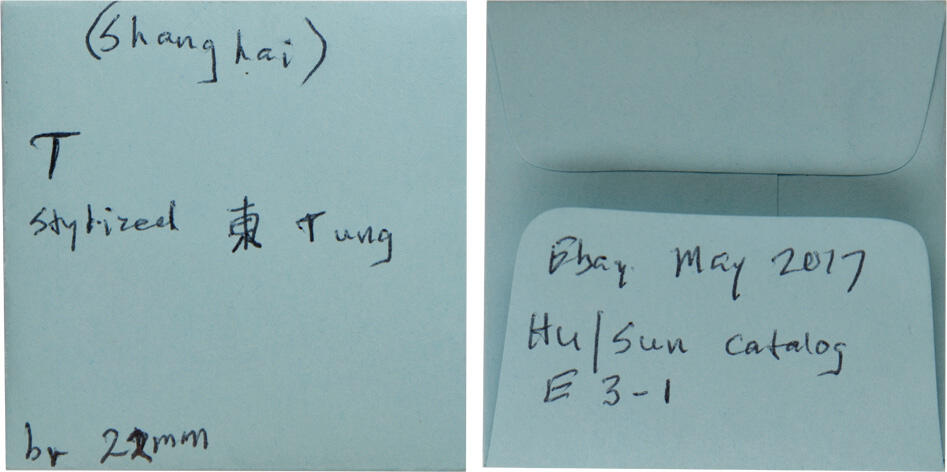 (Shanghai)
T
Stylized 東 Tung
br 22mm
Ebay May 2017
Hu/Sun catalog
E 3-1